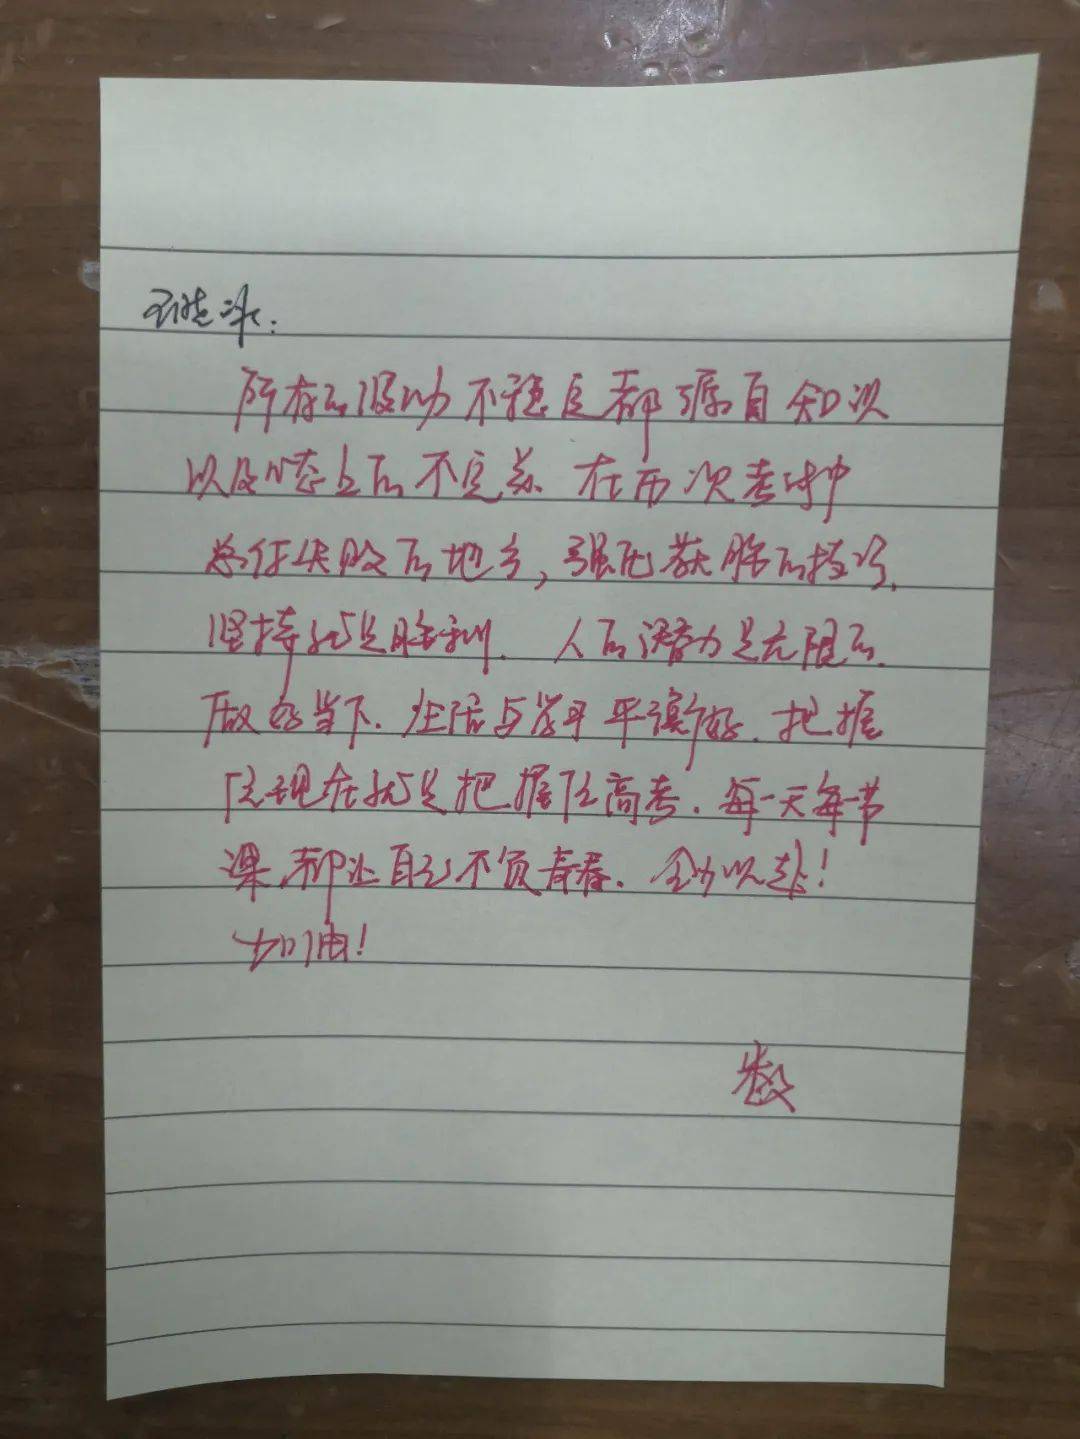 所有的波动不稳定都源自知识
以及心态上的不完善.在历次考试中
总结失败的地方,强化获胜的技巧.
坚持就是胜利.人的潜力是无限的.
做好当下.生活与学习平衡好.把握
住现在就是把握住高考.每一天每一节
课,都让自己不负青春.全力以赴!
加油!